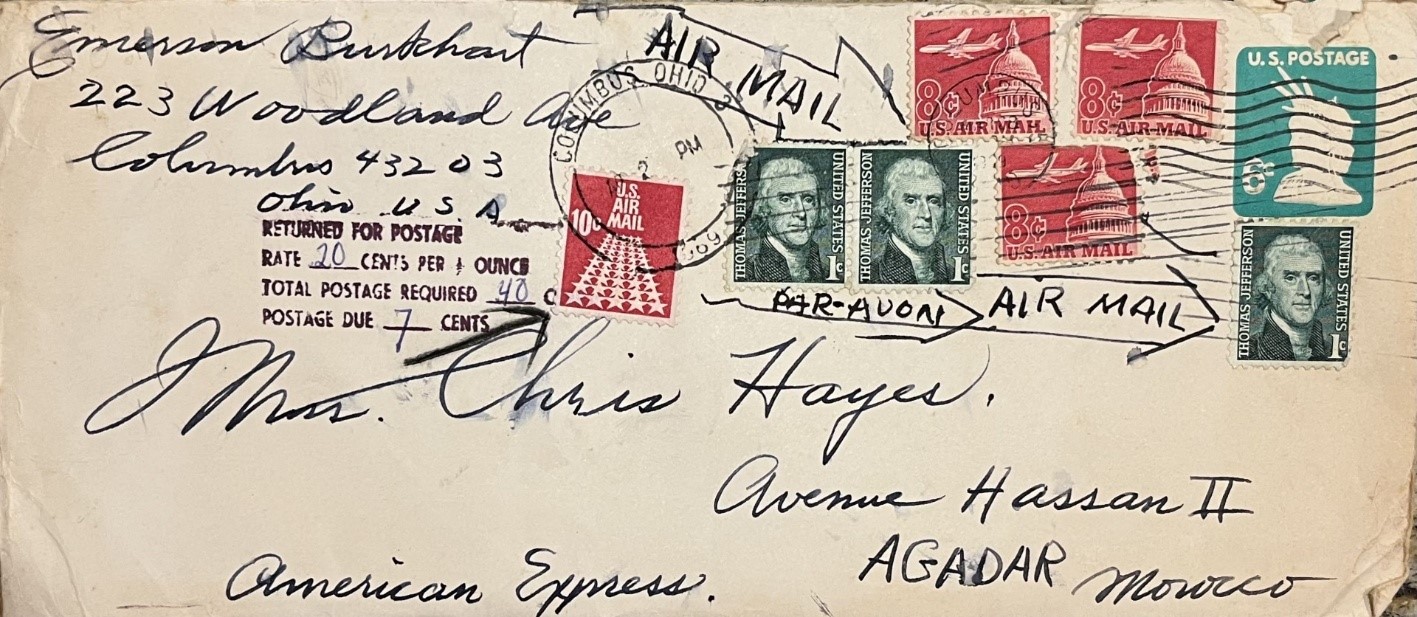 Emerson Burkhart
223 Woodland Ave
Columbus 43203
Ohio U S A
RETURNED FOR POSTAGE
RATE 20 CENTS PER ½ OUNCE
TOTAL POSTAGE REQUIRED 40 C
POSTAGE DUE 7 CENTS
AIR MAIL
COLUMBUS, OHIO
2 PM
1969
U.S. AIR MAIL
10c
THOMAS JEFFERSON UNITED STATES 1c
THOMAS JEFFERSON UNITED STATES 1c
8¢ U.S. AIR MAIL
8¢ U.S. AIR MAIL
8¢ U.S. AIR MAIL
U.S. POSTAGE
6¢
THOMAS JEFFERSON UNITED STATES 1c
PAR-AVON AIR MAIL
Mrs. Chris Hayes.
Avenue Hassan II
AGADAR Morocco
American Express.